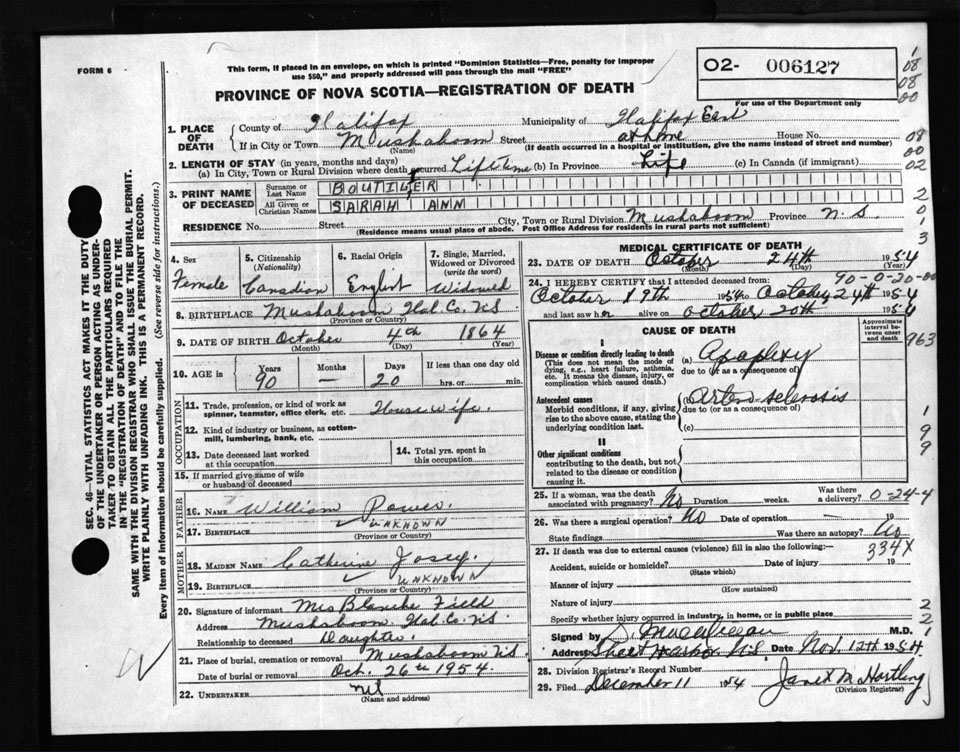 FORM 6
This form, if placed in an envelope, on which is printed "Dominion Statistics—Free, penalty for improper
use $50," and properly addressed will pass through the mail "FREE"
O2- 006127
For use of the Department only
PROVINCE OF NOVA SCOTIA—REGISTRATION OF DEATH
08
08
00
1. PLACE OF DEATH
County of Halifax Municipality of Halifax East
If in City or Town Mushaboom Street at home House No.
(Name) (If death occurred in a hospital or institution, give the name instead of street and number)
08
00
02
2. LENGTH OF STAY (in years, months and days)
(a) In City, Town or Rural Division where death occurred Lifetime (b) In Province Life (c) In Canada (if immigrant)
3. PRINT NAME OF DECEASED
Surname or Last Name BOUTILER
All Given or Christian Names SARAH ANN
2
0
1
3
RESIDENCE No. Street City, Town or Rural Division Mushaboom Province N.S.
(Residence means usual place of abode. Post Office Address for residents in rural parts not sufficient)
4. Sex
Female
5. Citizenship
(Nationality)
Canadian
6. Racial Origin
English
7. Single, Married,
Widowed or Divorced
(write the word)
Widowed
8. BIRTHPLACE Mushaboom Hal. Co. NS
(Province or Country)
9. DATE OF BIRTH October 4th 1864
(Month) (Day) (Year)
10. AGE in
Years 90
Months —
Days 20
If less than one day old
hrs. or min.
OCCUPATION
11. Trade, profession, or kind of work as
spinner, teamster, office clerk, etc. Housewife.
12. Kind of industry or business, as cotton-
mill, lumbering, bank, etc.
13. Date deceased last worked
at this occupation
14. Total yrs. spent in
this occupation
15. If married give name of wife
or husband of deceased
FATHER
16. NAME William Power.
17. BIRTHPLACE UNKNOWN
(Province or Country)
MOTHER
18. MAIDEN NAME Catherine
19. BIRTHPLACE UNKNOWN
(Province or Country)
20. Signature of informant Mrs Blanche Field
Address Mushaboom Hal. Co. NS
Relationship to deceased Daughter.
21. Place of burial, cremation or removal Mushaboom NS
Date of burial or removal Oct. 26th 1954.
22. UNDERTAKER nil
(Name and address)
MEDICAL CERTIFICATE OF DEATH
23. DATE OF DEATH October 24th 1954
(Month) (Day) (Year)
90-0-20-00
24. I HEREBY CERTIFY that I attended deceased from:
October 19th 1954 to October 24th 1954
and last saw her alive on October 20th 1954
CAUSE OF DEATH
Approximate
interval be-
tween onset
and death
963
I
Disease or condition directly leading to death
(This does not mean the mode of
dying, e.g., heart failure, asthenia,
etc. It means the disease, injury, or
complication which caused death.)
(a) Apoplexy
due to (or as a consequence of)
Antecedent causes
Morbid conditions, if any, giving
rise to the above cause, stating the
underlying condition last.
(b) Arterio-sclerosis
due to (or as a consequence of)
(c)
1
9
9
II
Other significant conditions
contributing to the death, but not
related to the disease or condition
causing it.
25. If a woman, was the death
associated with pregnancy? No Duration weeks. Was there
a delivery? 0-24-4
26. Was there a surgical operation? No Date of operation — 19
State findings Was there an autopsy? No
27. If death was due to external causes (violence) fill in also the following:—
334X
Accident, suicide or homicide? Date of injury 19
(State which)
Manner of injury
(How sustained)
Nature of injury
2
Specify whether injury occurred in industry, in home, or in public place
2
Signed by M.D.
1
Address Sheet Harbor N.S. Date Nov. 12th 1954.
28. Division Registrar's Record Number
29. Filed December 11 1954 Janet M Hartling
(Division Registrar)
SEC. 46—VITAL STATISTICS ACT MAKES IT THE DUTY
OF THE UNDERTAKER OR PERSON ACTING AS UNDER-
TAKER TO OBTAIN ALL THE PARTICULARS REQUIRED
IN THE "REGISTRATION OF DEATH" AND TO FILE THE
SAME WITH THE DIVISION REGISTRAR WHO SHALL ISSUE THE BURIAL PERMIT.
WRITE PLAINLY WITH UNFADING INK. THIS IS A PERMANENT RECORD.
Every item of information should be carefully supplied. (See reverse side for instructions.)